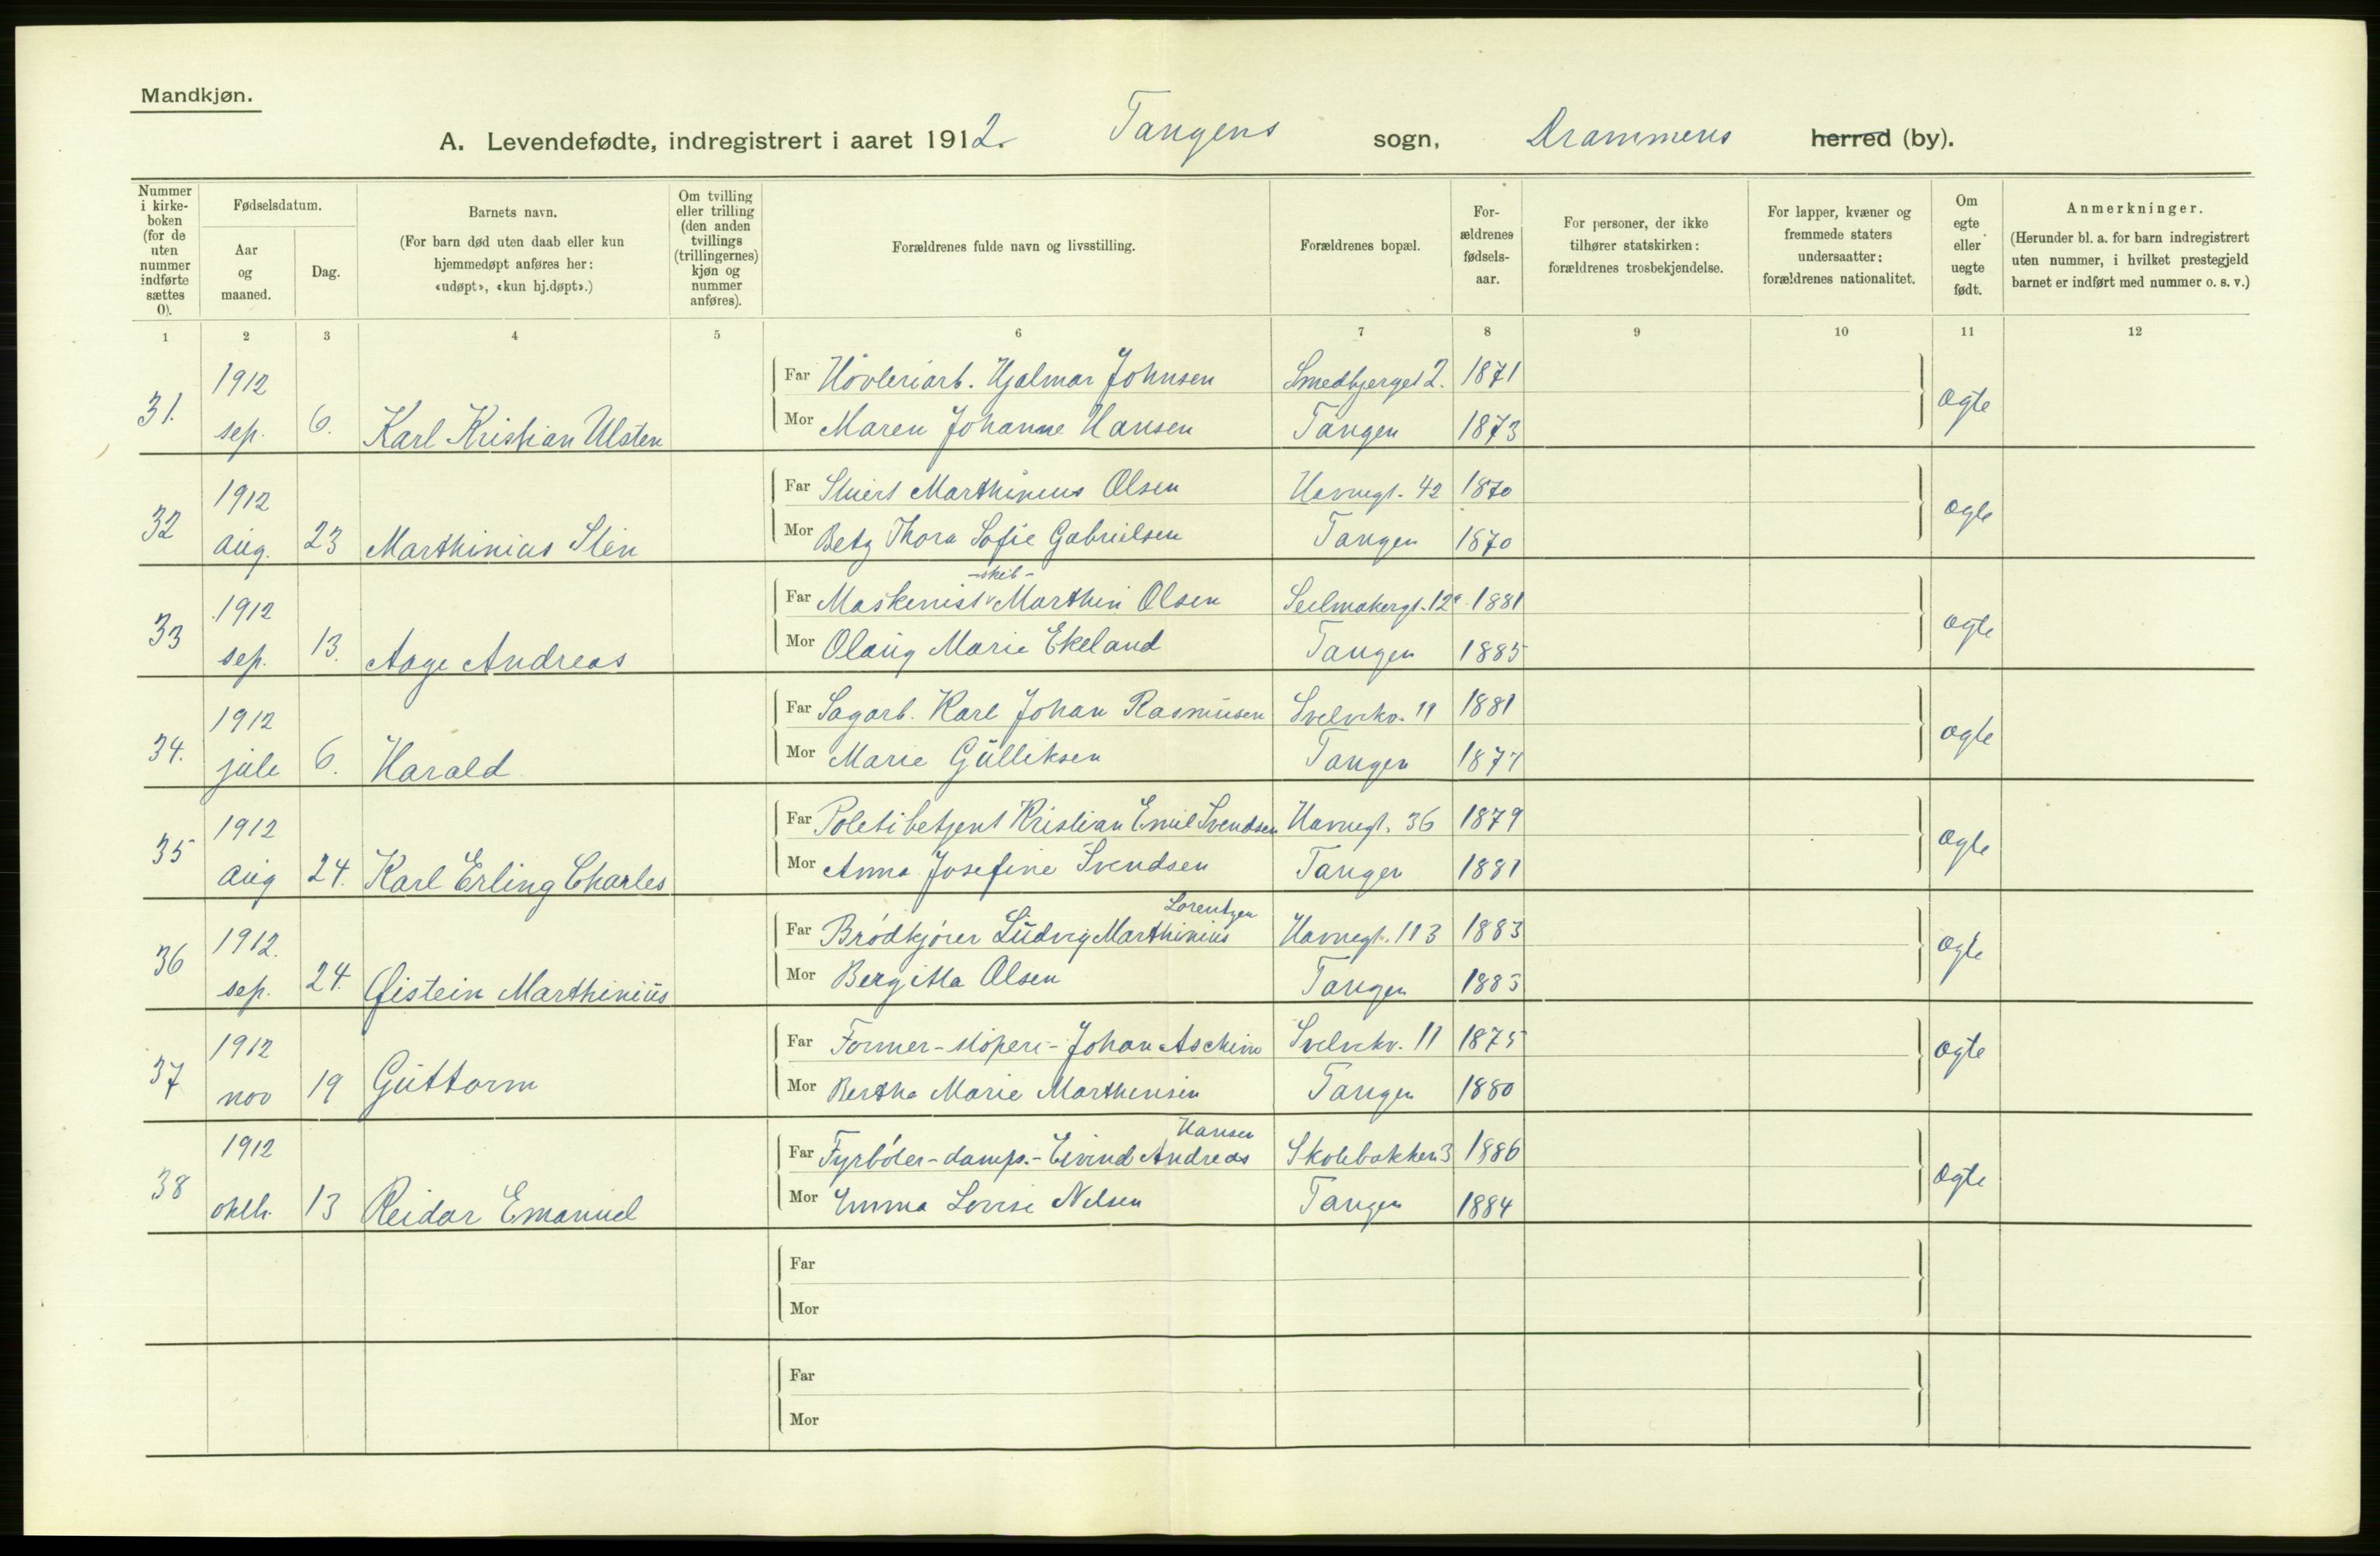 Mandkjøn.
A. Levendefødte, indregistrert i aaret 1912. Tangens sogn, Drammens herred (by).
Nummer i kirke-boken (for de uten nummer indførte sættes 0).
Fødselsdatum.
Aar og maaned.
Dag.
Barnets navn.
(For barn død uten daab eller kun hjemmedøpt anføres her: «udøpt», «kun hj.døpt».)
Om tvilling eller trilling (den anden tvillings (trillingernes) kjøn og nummer anføres).
Forældrenes fulde navn og livsstilling.
Forældrenes bopæl.
For-ældrenes fødsels-aar.
For personer, der ikke tilhører statskirken: forældrenes trosbekjendelse.
For lapper, kvæner og fremmede staters undersaatter: forældrenes nationalitet.
Om egte eller uegte født.
Anmerkninger.
(Herunder bl. a. for barn indregistrert uten nummer, i hvilket prestegjeld barnet er indført med nummer o. s. v.)
1 2 3 4 5 6 7 8 9 10 11 12
1912 Far Høvleriarb. Hjalmar Johnsen Smedbjerget 2. 1871
31. sep. 6. Karl Kristian Ulsten Mor Maren Johanne Hansen Tangen 1873 ægte
1912 Far Marthinius Olsen Havnegt. 42 1870
32 aug. 23 Marthinius Mor Thora Sofie Gabrielsen Tangen 1870 ægte
-skib-
1912 Far Maskinist Marthin Olsen Seilmakergt. 12a 1881
33 sep. 13. Aage Andreas Mor Olaug Marie Ekeland Tangen 1885 ægte
1912 Far Sagarb. Karl Johan Rasmusen Svelvikv. 11 1881
34. juli 6. Harald Mor Marie Gulliksen Tangen 1877 ægte
1912 Far Politibetjent Kristian Emil Svendsen Havnegt. 36 1879
35 aug 24. Karl Erling Charles Mor Anna Josefine Svendsen Tangen 1881 ægte
Lorentzen
1912. Far Brødkjører Ludvig Marthinius Havnegt. 113 1883
36 sep. 24. Øistein Marthinius Mor Bergitta Olsen Tangen 1883 ægte
1912 Far Former-støperi- Johan Aschim Svelvikv. 11 1875
37 nov 19 Guttorm Mor Bertha Marie Marthinsen Tangen 1880 ægte
Hansen
1912 Far Fyrbøter-damps.- Eivind Andreas Skolebakken 3 1886
38 oktb. 13 Reidar Emanuel Mor Emma Lovise Nilsen Tangen 1884 ægte
Far
Mor
Far
Mor